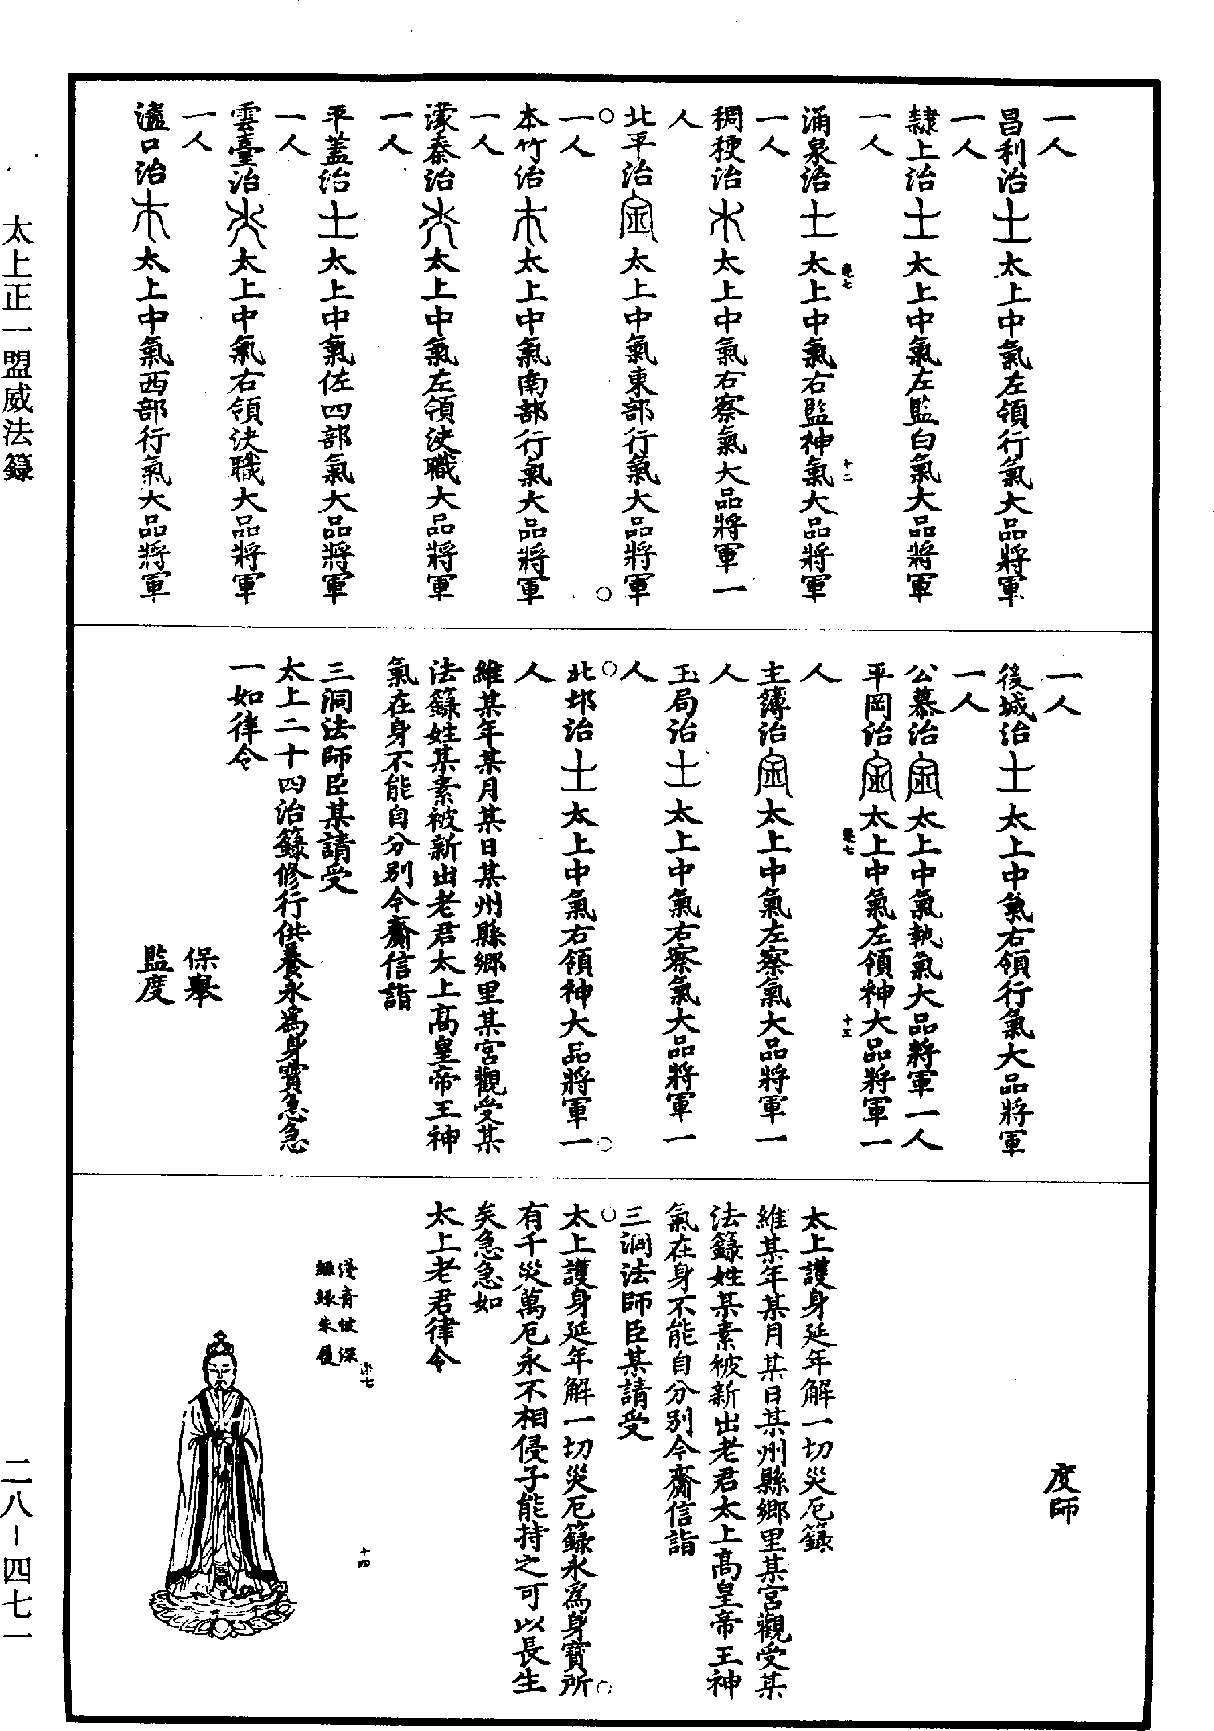 一人
昌利治土太上中氣左領行氣大品將軍
一人
隸上治土太上中氣左監白氣大品將軍
一人
涌泉治土太上中氣右監神氣大品將軍
一人
稠稉治水太上中氣右察氣大品將軍一
人
北平治金太上中氣東部行氣大品將軍
一人
本竹治木太上中氣南部行氣大品將軍
一人
濛秦治火太上中氣左領決職大品將軍
一人
平蓋治土太上中氣佐四部氣大品將軍
一人
雲臺治火太上中氣右領決職大品將軍
一人
濜口治木太上中氣西部行氣大品將軍
一人
後城治土太上中氣右領行氣大品將軍
一人
公慕治金太上中氣執氣大品將軍一人
平岡治金太上中氣左領神大品將軍一
人
主簿治金太上中氣左察氣大品將軍一
人
玉局治土太上中氣右察氣大品將軍一
人
北邙治土太上中氣右領神大品將軍一
人
維某年某月某日某州縣鄉里某宮觀受某
法籙姓某素被新出老君太上高皇帝王神
氣在身不能自分別今齋信詣
三洞法師臣某請受
太上二十四治籙修行供養永為身寶急急
一如律令
保舉
監度
度師
太上護身延年解一切災厄籙
維某年某月某日某州縣鄉里某宮觀受某
法籙姓某素被新出老君太上高皇帝王神
氣在身不能自分別今齋信詣
三洞法師臣某請受
太上護身延年解一切災厄籙永為身寶所
有千災萬厄永不相侵子能持之可以長生
矣急急如
太上老君律令
淺青帔深
緣朱履
太上正一盟威法籙
二八-四七一